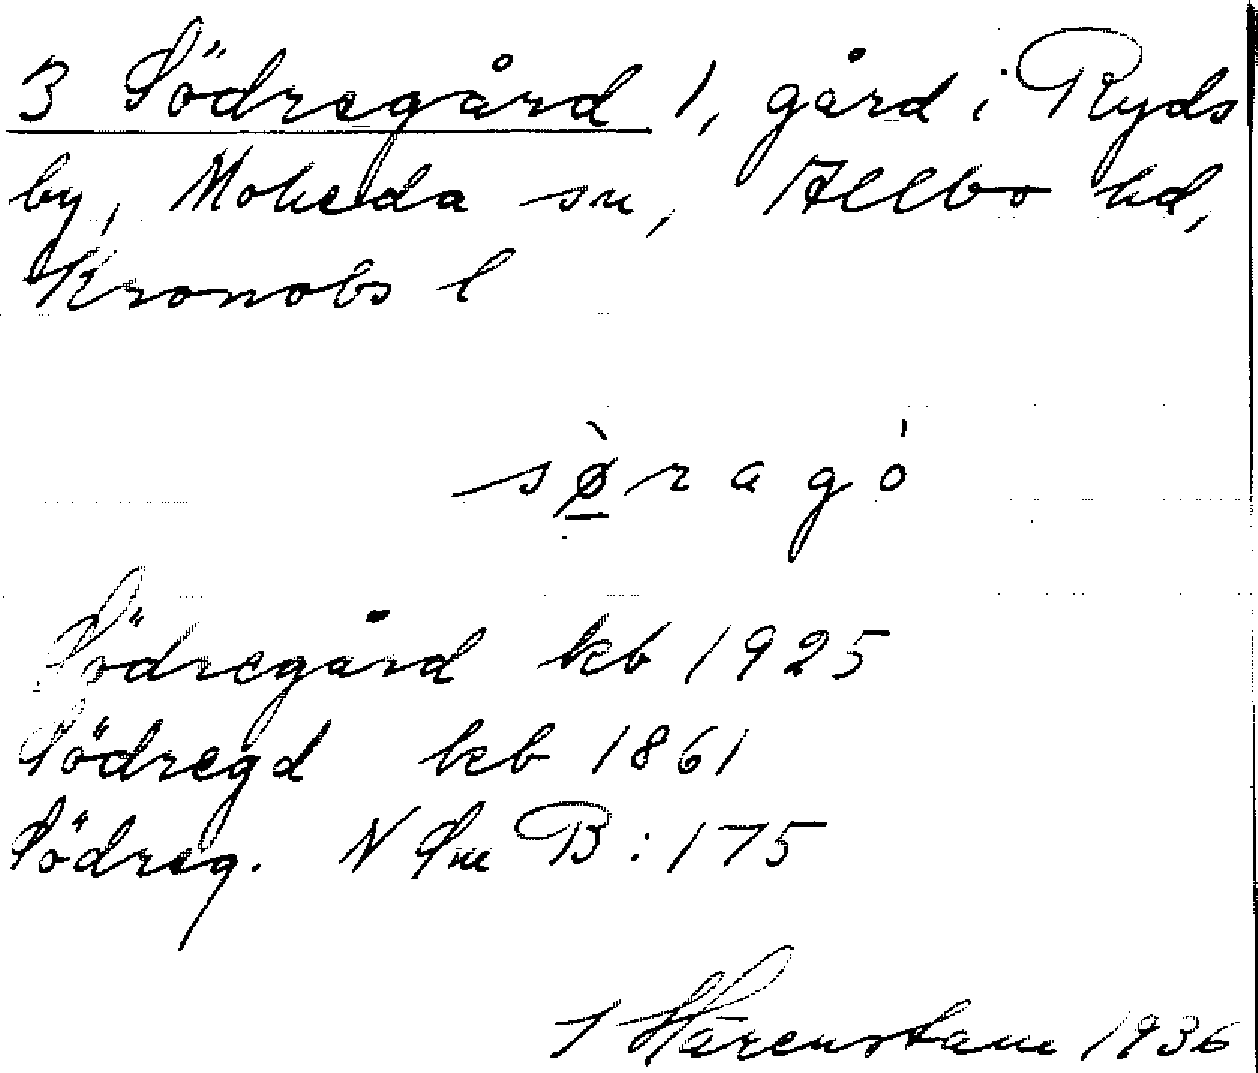 3 Södregård 1, gård i Ryds
by, Moheda sn, Allbo hd,
Kronobs l
sø̀ragó
Södregård kb 1925
Södregd kb 1861
Södreg. N Sm B: 175
J Härenstam 1936